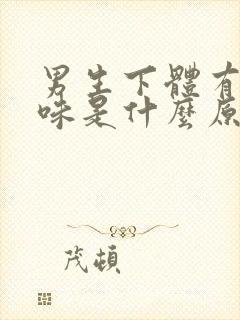 男生下體有
味是什麼原
茂頓